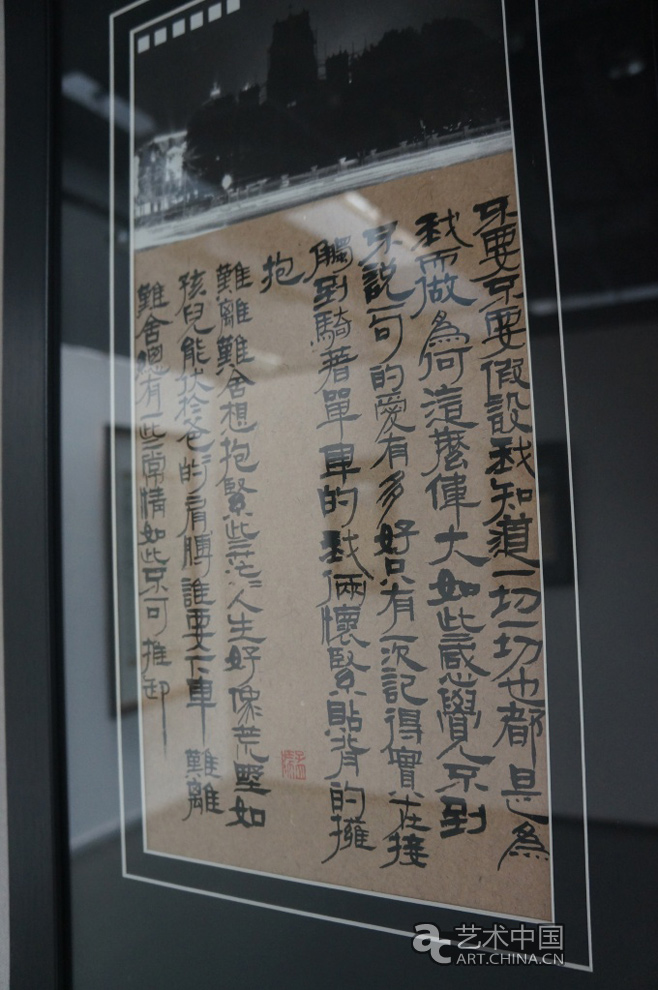 不要不要假設我知道一切一切也都是為
我而做為何這麼偉大如此感覺不到
不說一句的愛有多好只有一次記得實在接
觸到騎著單車的我倆懷緊貼背的擁
抱
難離難舍想抱緊些茫〻人生好像荒野如
孩兒能伏於爸〻的肩膊誰要下車 難離
難舍總有一些常情如此不可推卸
艺术中国
ART.CHINA.CN